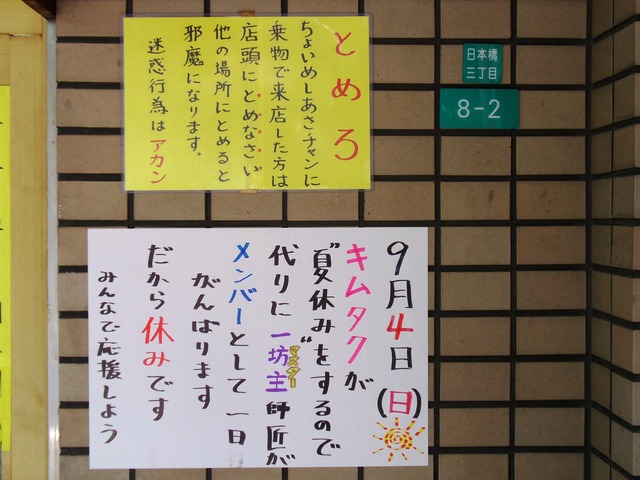 とめろ
ちょいめしあさチャンに
乗物で来店した方は
店頭にとめなさい
他の場所にとめると
邪魔になります。
迷惑行為はアカン
日本橋
三丁目
8-2
9月4日(日)
キムタクが
"夏休み"をするので
代りに一坊主師匠が
マスター
メンバーとして一日
がんばります
だから休みです
みんなで応援しよう